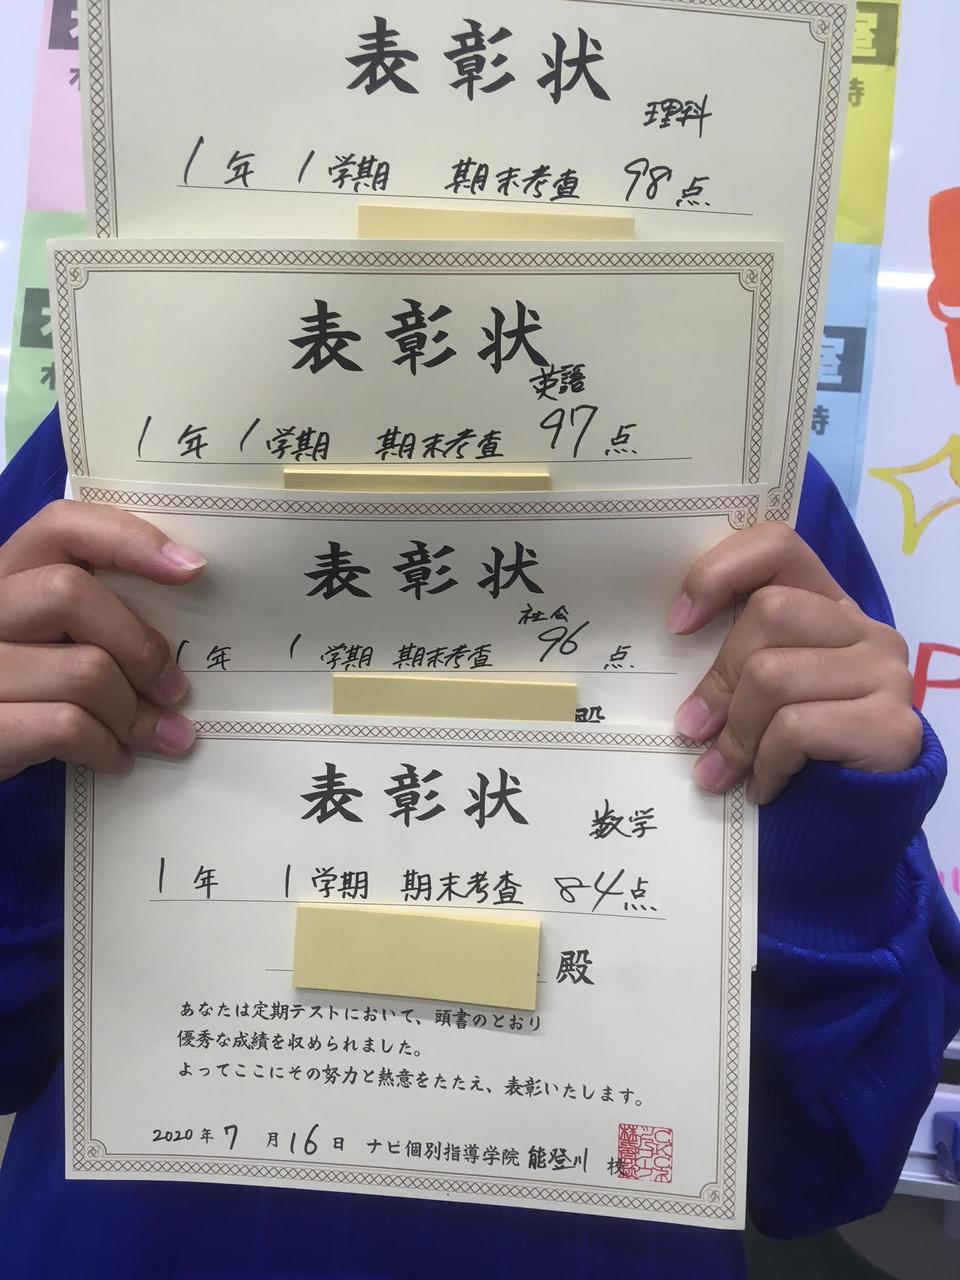 表彰状
理科
1年 1学期 期末考査 98点
表彰状
英語
1年 1学期 期末考査 97点
表彰状
社会
1年 1学期 期末考査 96点
殿
表彰状
数学
1年 1学期 期末考査 84点
殿
あなたは定期テストにおいて、頭書のとおり
優秀な成績を収められました。
よってここにその努力と熱意をたたえ、表彰いたします。
2020年7月16日 ナビ個別指導学院 能登川 校
室
時
室
時
P